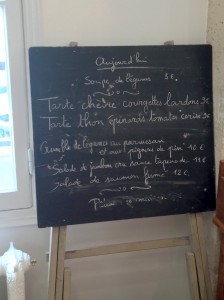 Aujourd'hui
Soupe de légumes 5€
Tarte chèvre courgettes lardons 9€
Tarte thon épinards tomates cerises 9€
de légumes au parmesan
et aux pignons de pin 10€
Salade de jambon cru sauce tapenade 11€
Salade de saumon fumé 12€